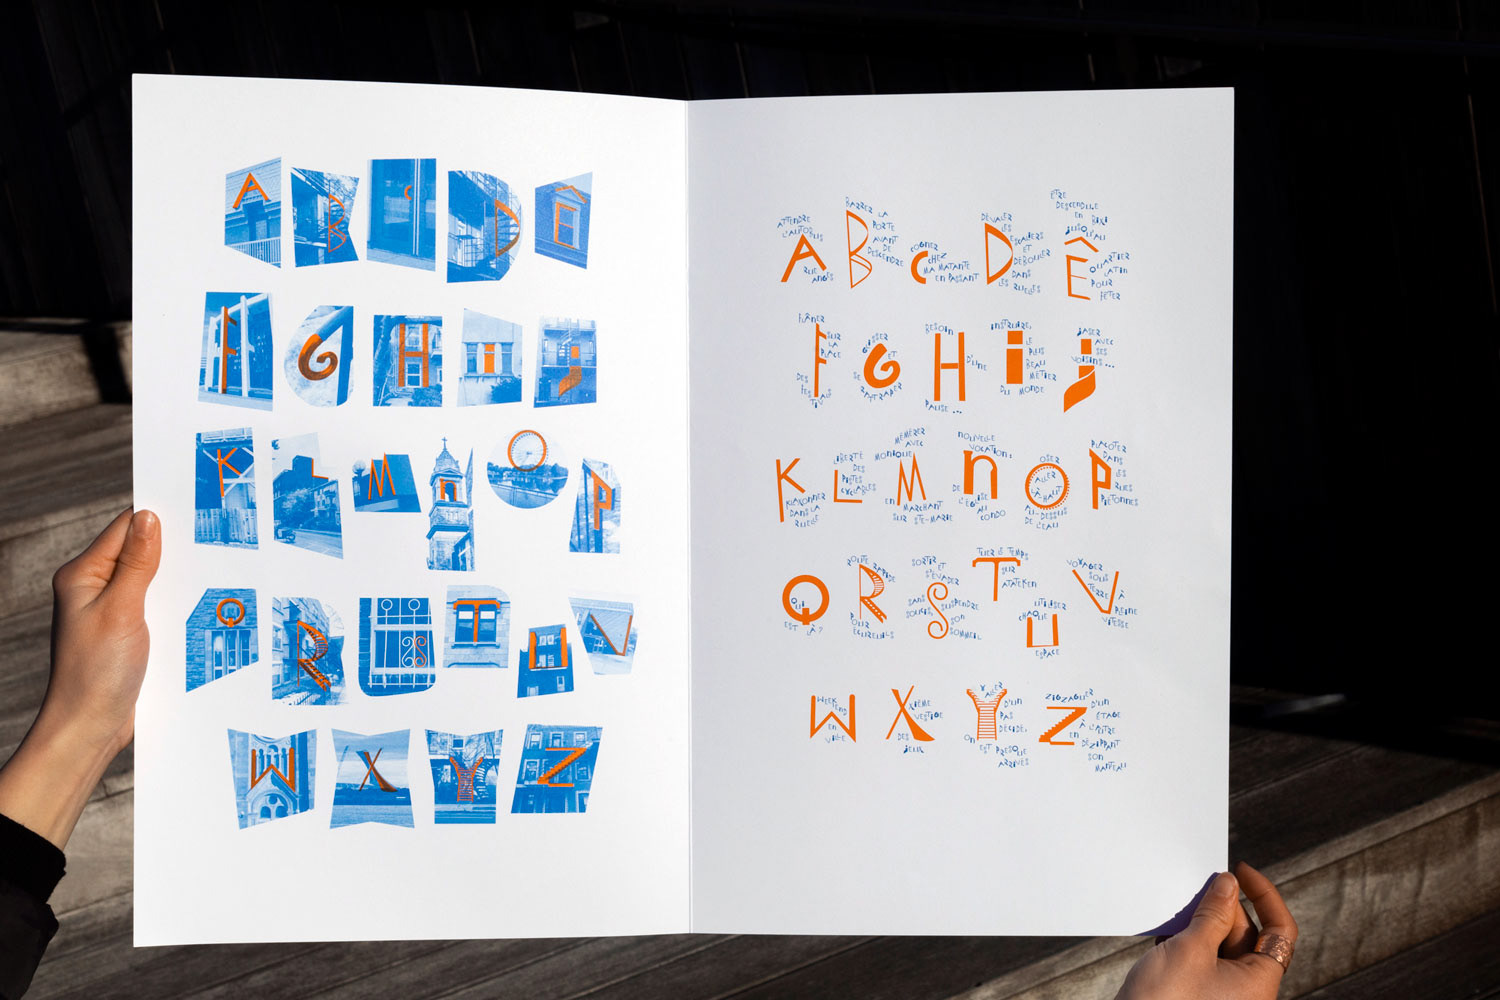 A B C D Ê
F G H i j
K L M n O P
Q R S T U V
W X Y Z
ATTENDRE L'AUTOBUS RUE ANGES
A
BARRER LA PORTE AVANT DE DESCENDRE
B
COGNER CHEZ MA MATANTE EN PASSANT
C
DÉVALER LES ESCALIERS ET DÉBOULER DANS LES RUELLES
D
ÊTRE DESCENDUE EN BIXI JUSQU'AU QUARTIER LATIN POUR FÊTER
Ê
FLÂNER SUR LA PLACE DES FESTIVALS
F
GLISSER ET SE RATTRAPER
G
BESOIN D'UNE PAUSE...
H
INSTRUIRE, LE PLUS BEAU MÉTIER DU MONDE
i
JASER AVEC SES VOISINS...
j
KLAXONNER DANS LA RUELLE
K
LIBERTÉ DES PISTES CYCLABLES
L
MÉMÉRER AVEC MONIQUE EN MARCHANT SUR STE-MARIE
M
NOUVELLE VOCATION: DE L'ÉGLISE AU CONDO
n
OSER ALLER LÀ-HAUT AU-DESSUS DE L'EAU
O
PLACOTER DANS LES RUES PIÉTONNES
P
QUI EST LÀ?
Q
ROUTE RAPIDE POUR ÉCUREUILS
R
SORTIR ET S'ÉVADER SANS SOUCIS, SUSPENDRE SON SOMMEIL
S
TUER LE TEMPS SUR ATATEKEN
T
UTILISER CHAQUE ESPACE
U
VOYAGER SOUS TERRE À PLEINE VITESSE
V
WEEKENDS EN VILLE
W
XXIÈME VESTIGE DES JEUX
X
Y ALLER D'UN PAS DÉCIDÉ, ON EST PRESQUE ARRIVÉS
Y
ZIGZAGUER D'UN ÉTAGE À L'AUTRE EN DÉZIPPANT SON MANTEAU
Z